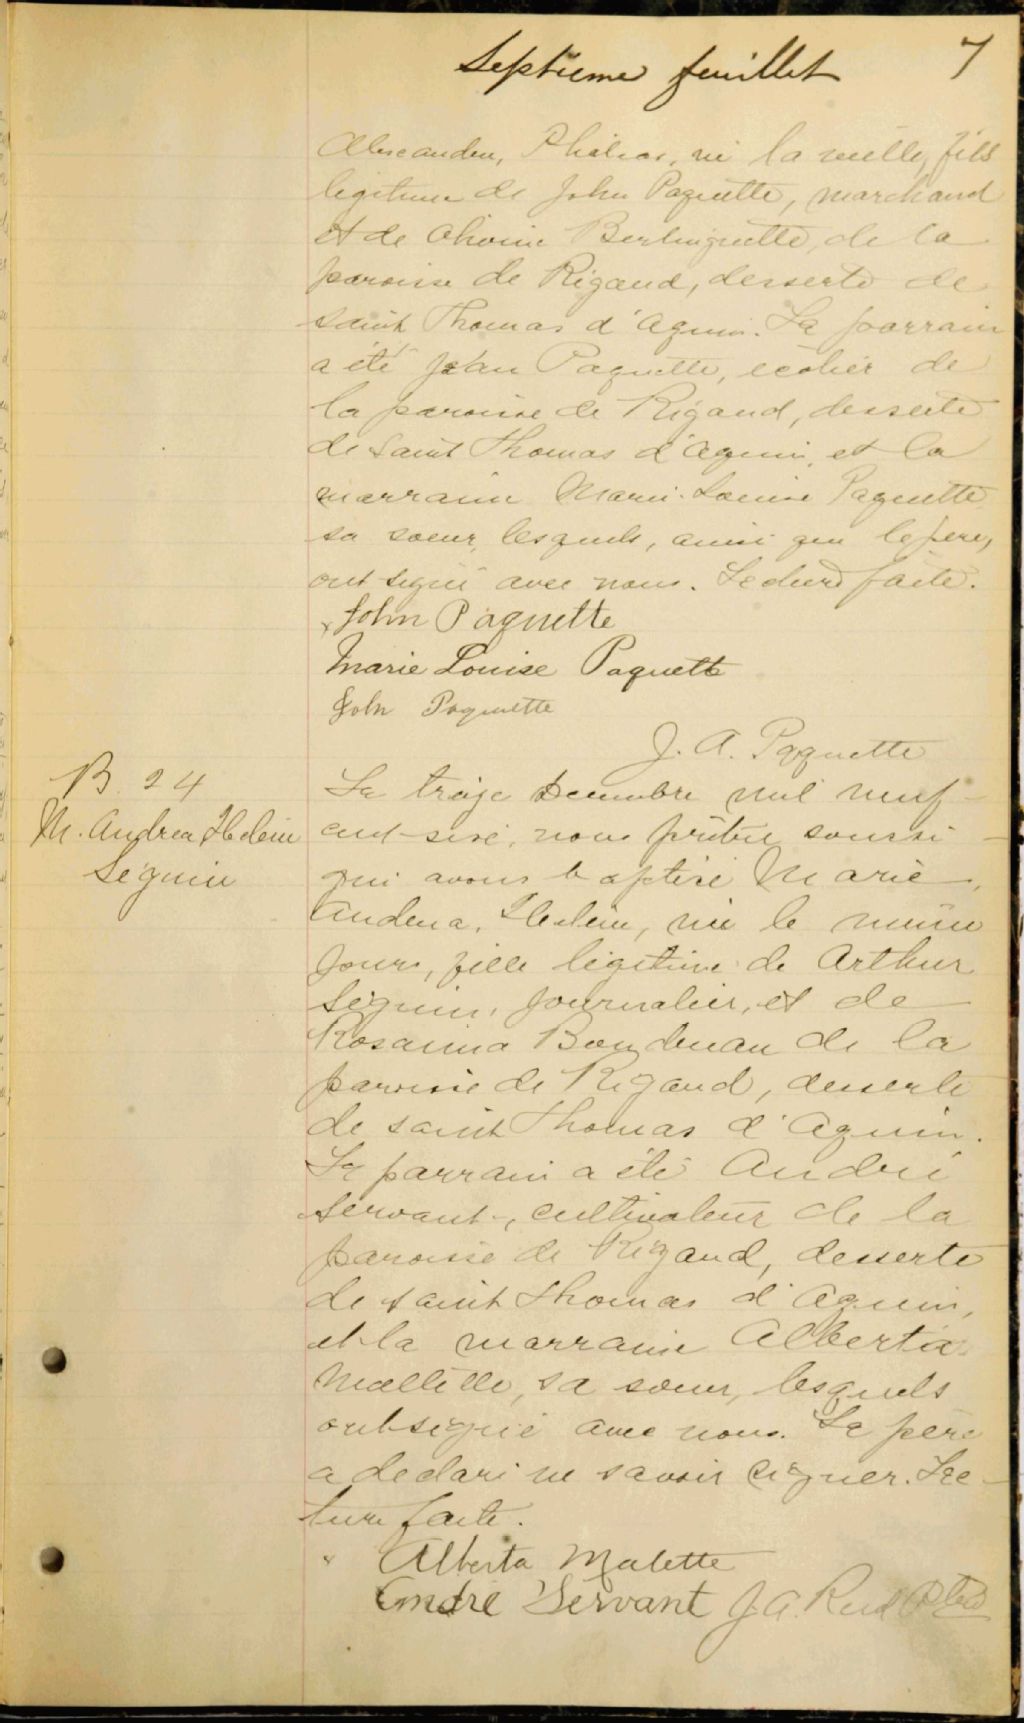 Septième feuillet 7
Alexandre, né la veille, fils
légitime de John Paquette, marchand
et de Berlinguette, de la
paroisse de Rigaud, desserte de
saint Thomas d'Aquin. Le parrain
a été Jean Paquette, écolier de
la paroisse de Rigaud, desserte
de Saint Thomas d'Aquin, et la
marraine Marie-Louise Paquette
sa soeur, lesquels, ainsi que le père,
ont signé avec nous. Lecture faite.
x John Paquette
Marie Louise Paquette
John Paquette
J. A. Paquette
B. 24
M. Andrea Helein
Séguin
Le treize Decembre mil neuf
cent seize, nous prêtre soussi
gné avons baptisé Marie,
Andrea, Helein, née le même
jour, fille légitime de Arthur
Séguin, journalier, et de
Rosanna de la
paroisse de Rigaud, desserte
de saint Thomas d'Aquin.
Le parrain a été André
Servant, cultivateur de la
paroisse de Rigaud, desserte
de saint Thomas d'Aquin,
et la marraine Alberta
Mallette, sa soeur, lesquels
ont signé avec nous. Le père
a déclaré ne savoir signer. Lec
ture faite.
x Alberta Malette
André Servant J. A.